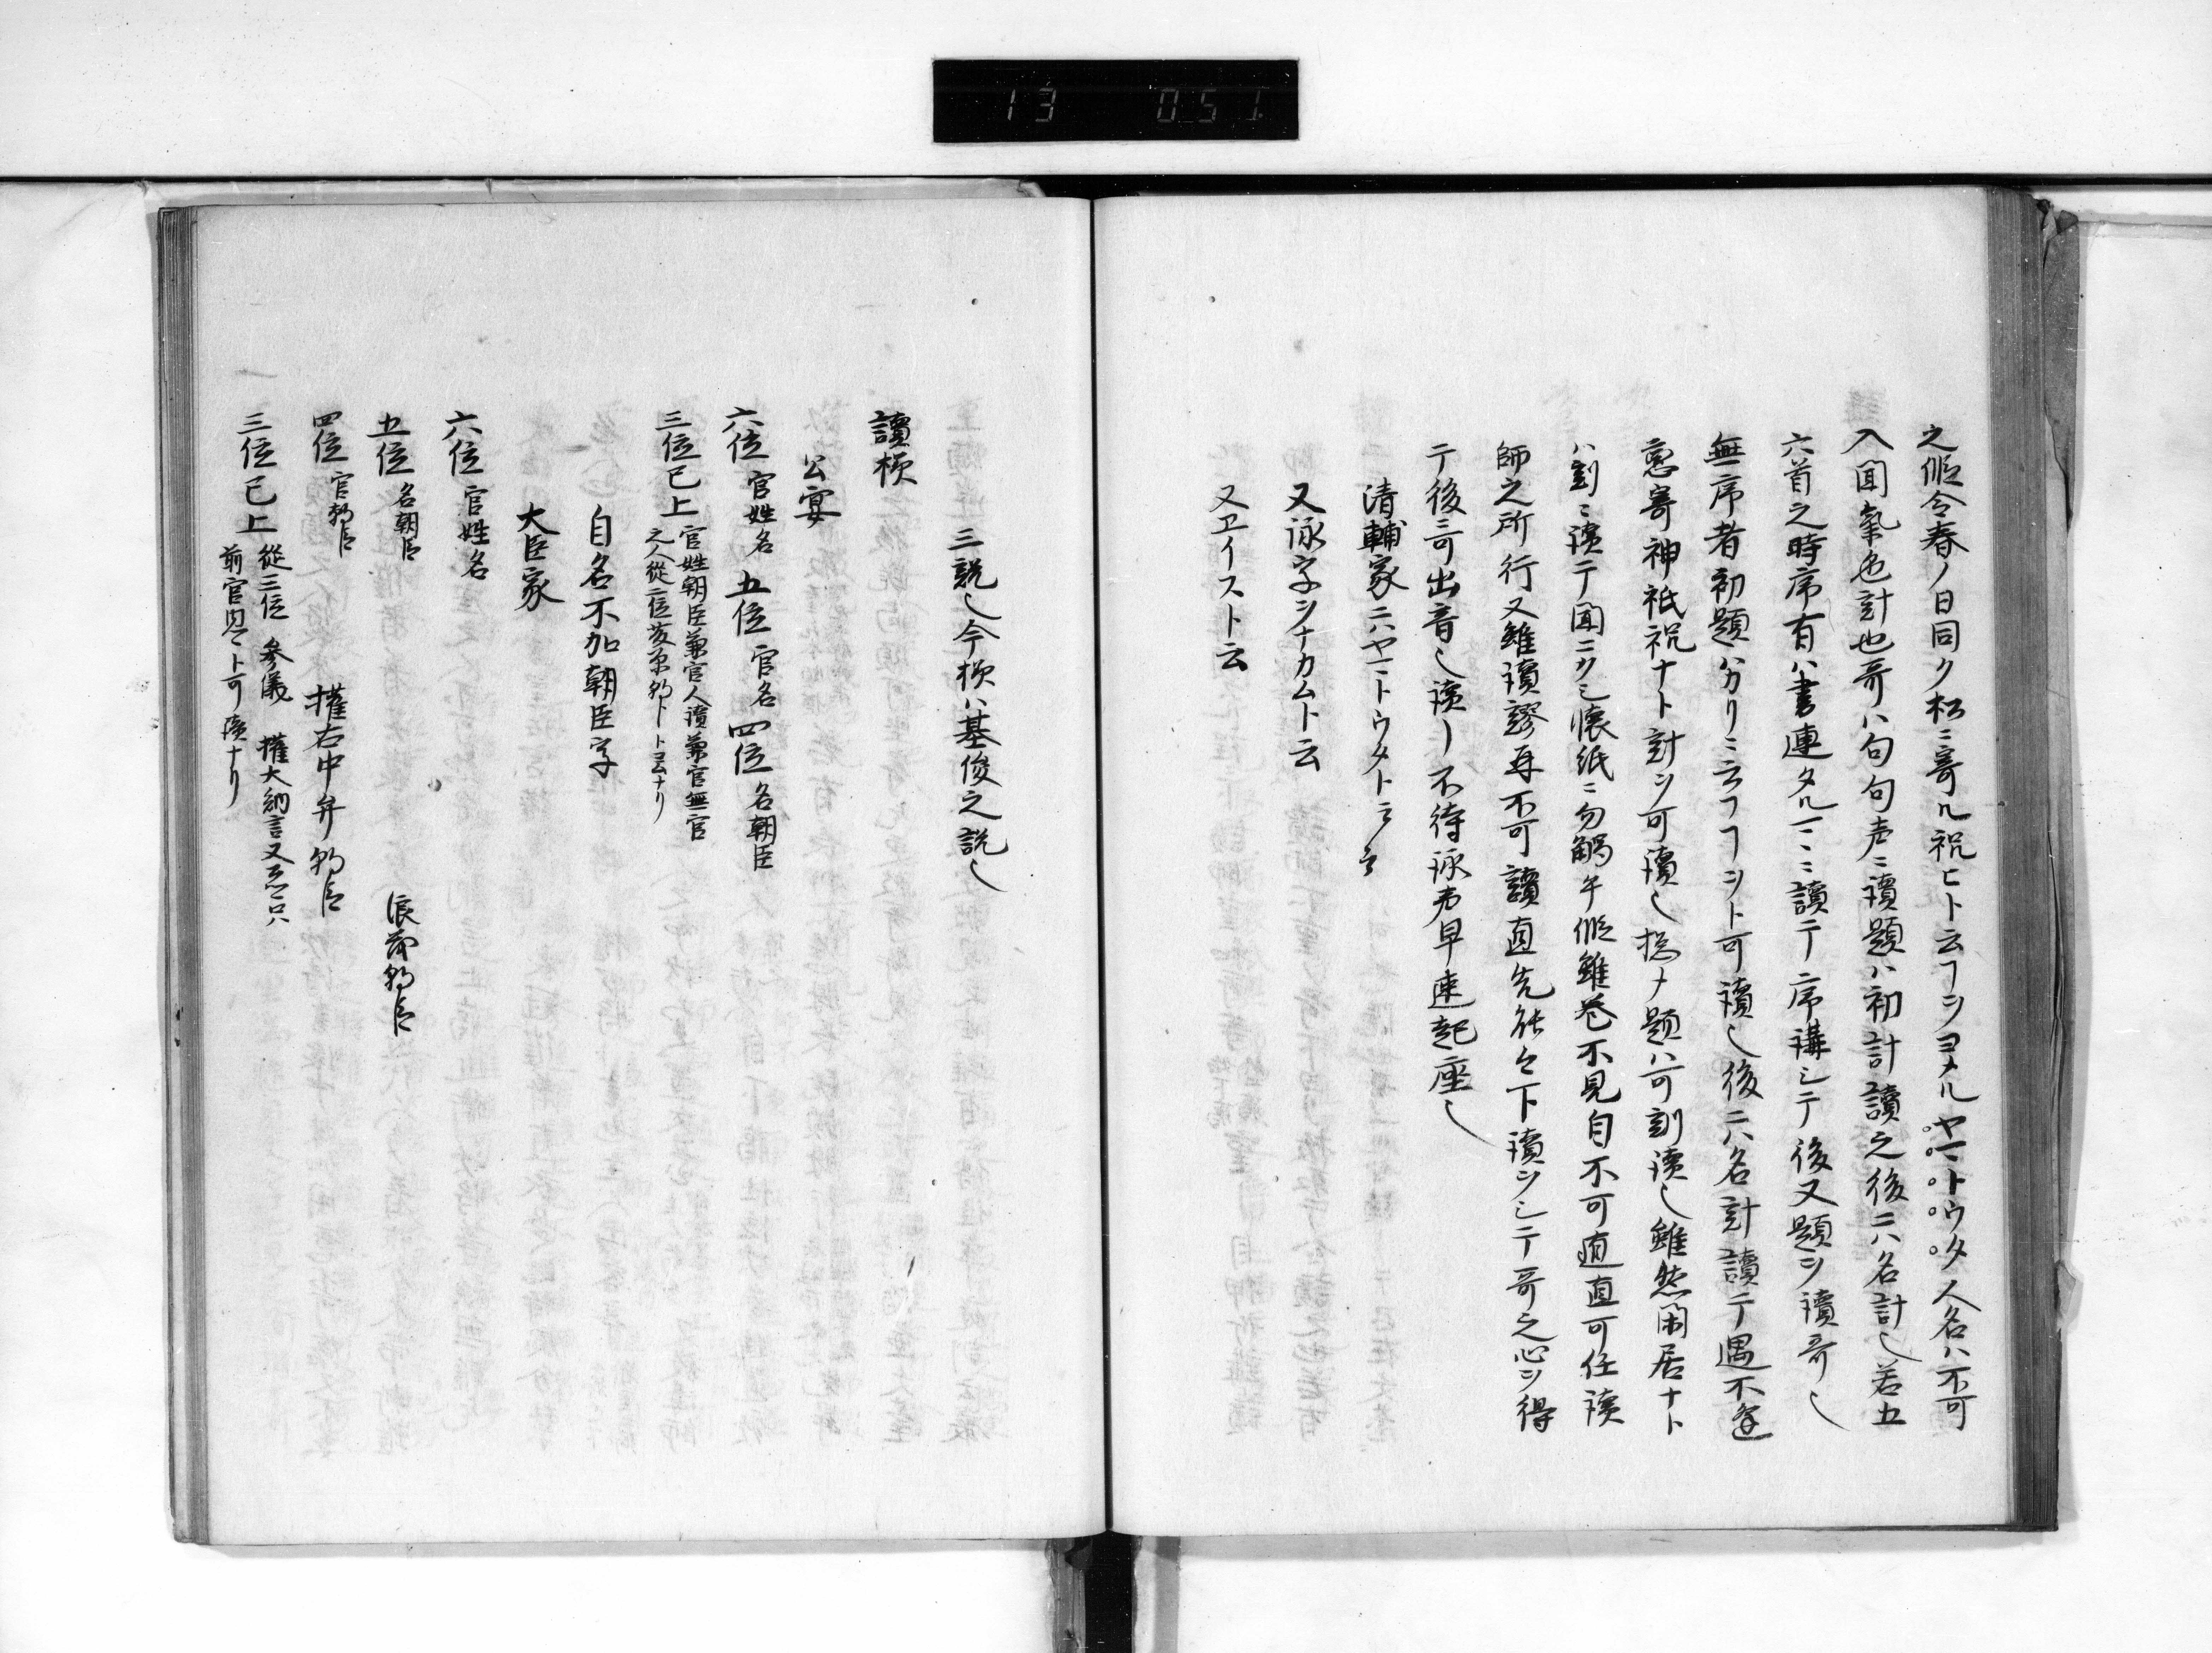 13 051
之假令春ノ日同ク松ニ寄ル祝ヒト云フヿヲヨメルヤマトウタ人名ハ不可
入聞氣色計也哥ハ句句声ニ讀題ハ初計讀之後ニハ名計也若五
六首之時序有ハ書連タルマヽニ讀テ序講シテ後又題ヲ讀哥也
無序者初題ハカリ云フヿヲト可讀也後ニハ名計讀テ遇不逢
恋寄神祇祝ナト計ヲ可讀也惣ナ題ハ可訓讀也雖然閑居ナト
ハ訓ニ讀テ聞ニクシ懐紙ニ勿觸手假雖巻不見自不可直可任讀
師之所行又雖讀謬再不可讀直先能々下讀ヲシテ哥之心ヲ得
テ後可出音也讀了不待詠声早速起座也
清輔家ニハヤマトウタト云々
又詠字ヲナカムト云
又ヱイスト云
三説也今樣ハ基俊之説也
讀樣
公宴
六位 官姓名 五位 官名 四位 名朝臣
三位已上 官姓朝臣兼官人讀兼官無官
自名不加朝臣字
大臣家
六位 官姓名
五位 名朝臣
四位 官朝臣 權右中弁朝臣
三位已上 從三位 參儀 權大納言
前官 ト可讀ナリ